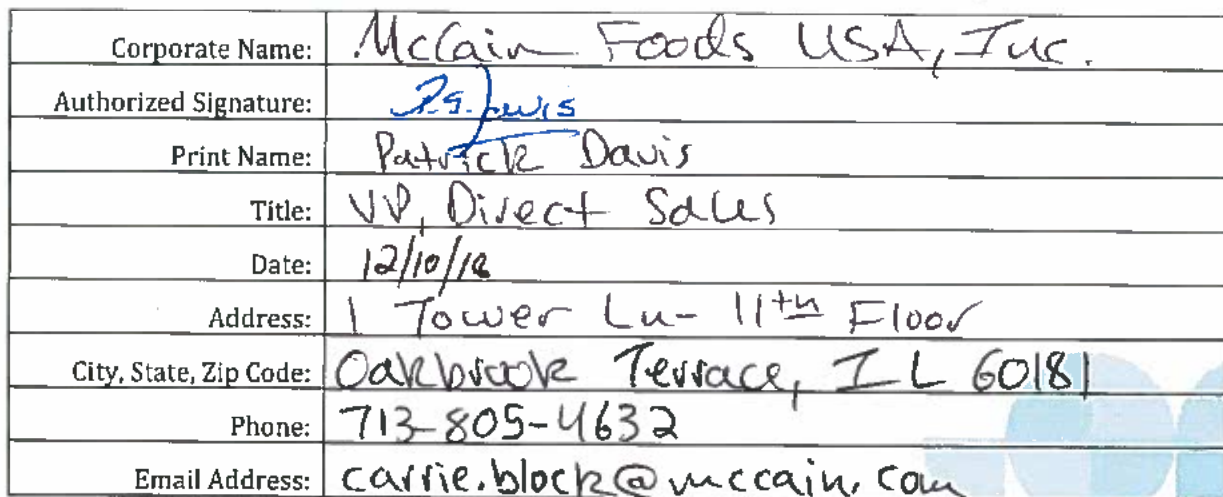 Corporate Name: McCain Foods USA, Inc.
Authorized Signature:
Print Name: Patrick Davis
Title: VP, Direct Sales
Date: 12/10/18
Address: 1 Tower Ln- 11th Floor
City, State, Zip Code: Oakbrook Terrace, IL 60181
Phone: 713-805-4632
Email Address: carrie.block@mccain.com